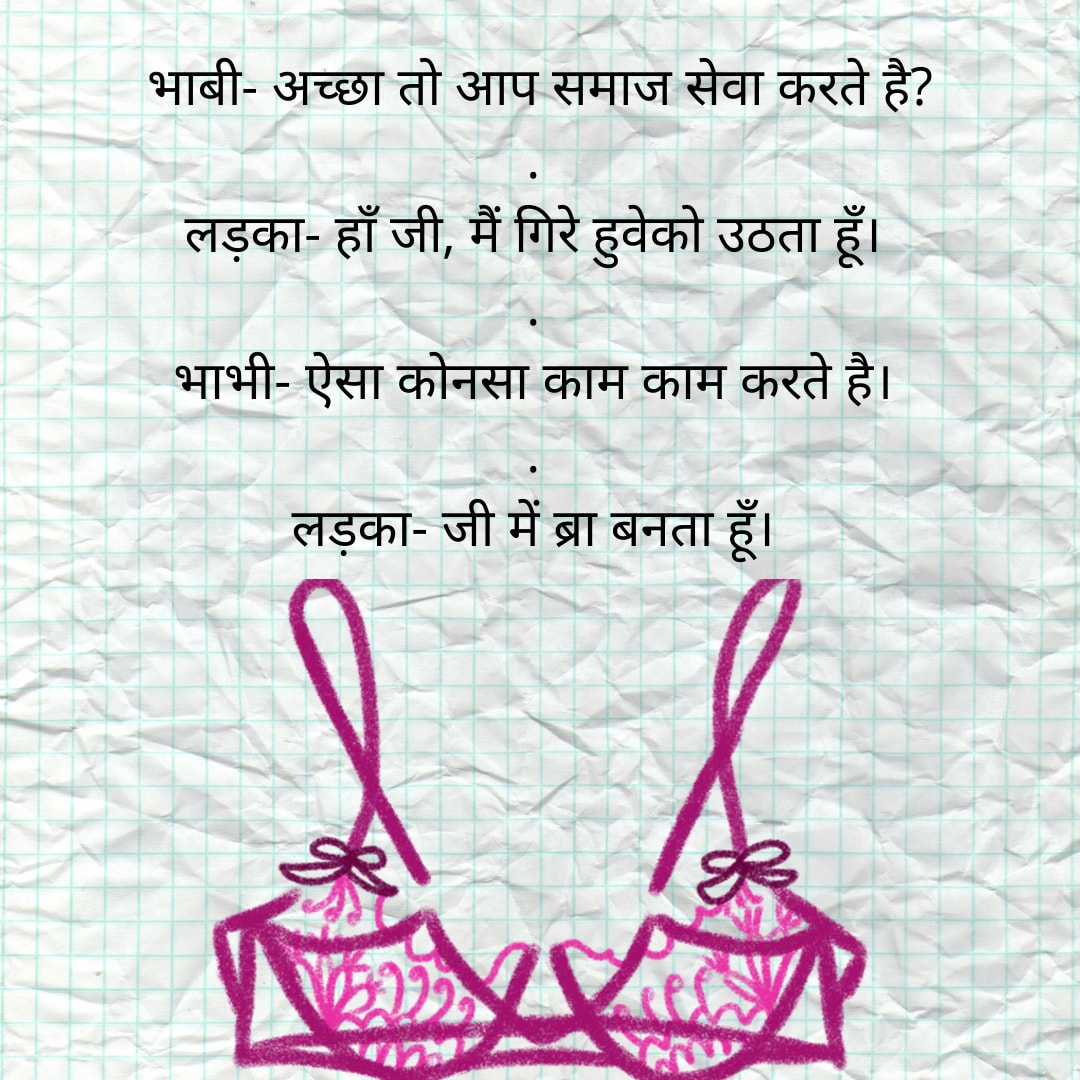 भाबी- अच्छा तो आप समाज सेवा करते है?
.
लड़का- हाँ जी, मैं गिरे हुवेको उठता हूँ।
.
भाभी- ऐसा कोनसा काम काम करते है।
.
लड़का- जी में ब्रा बनता हूँ।